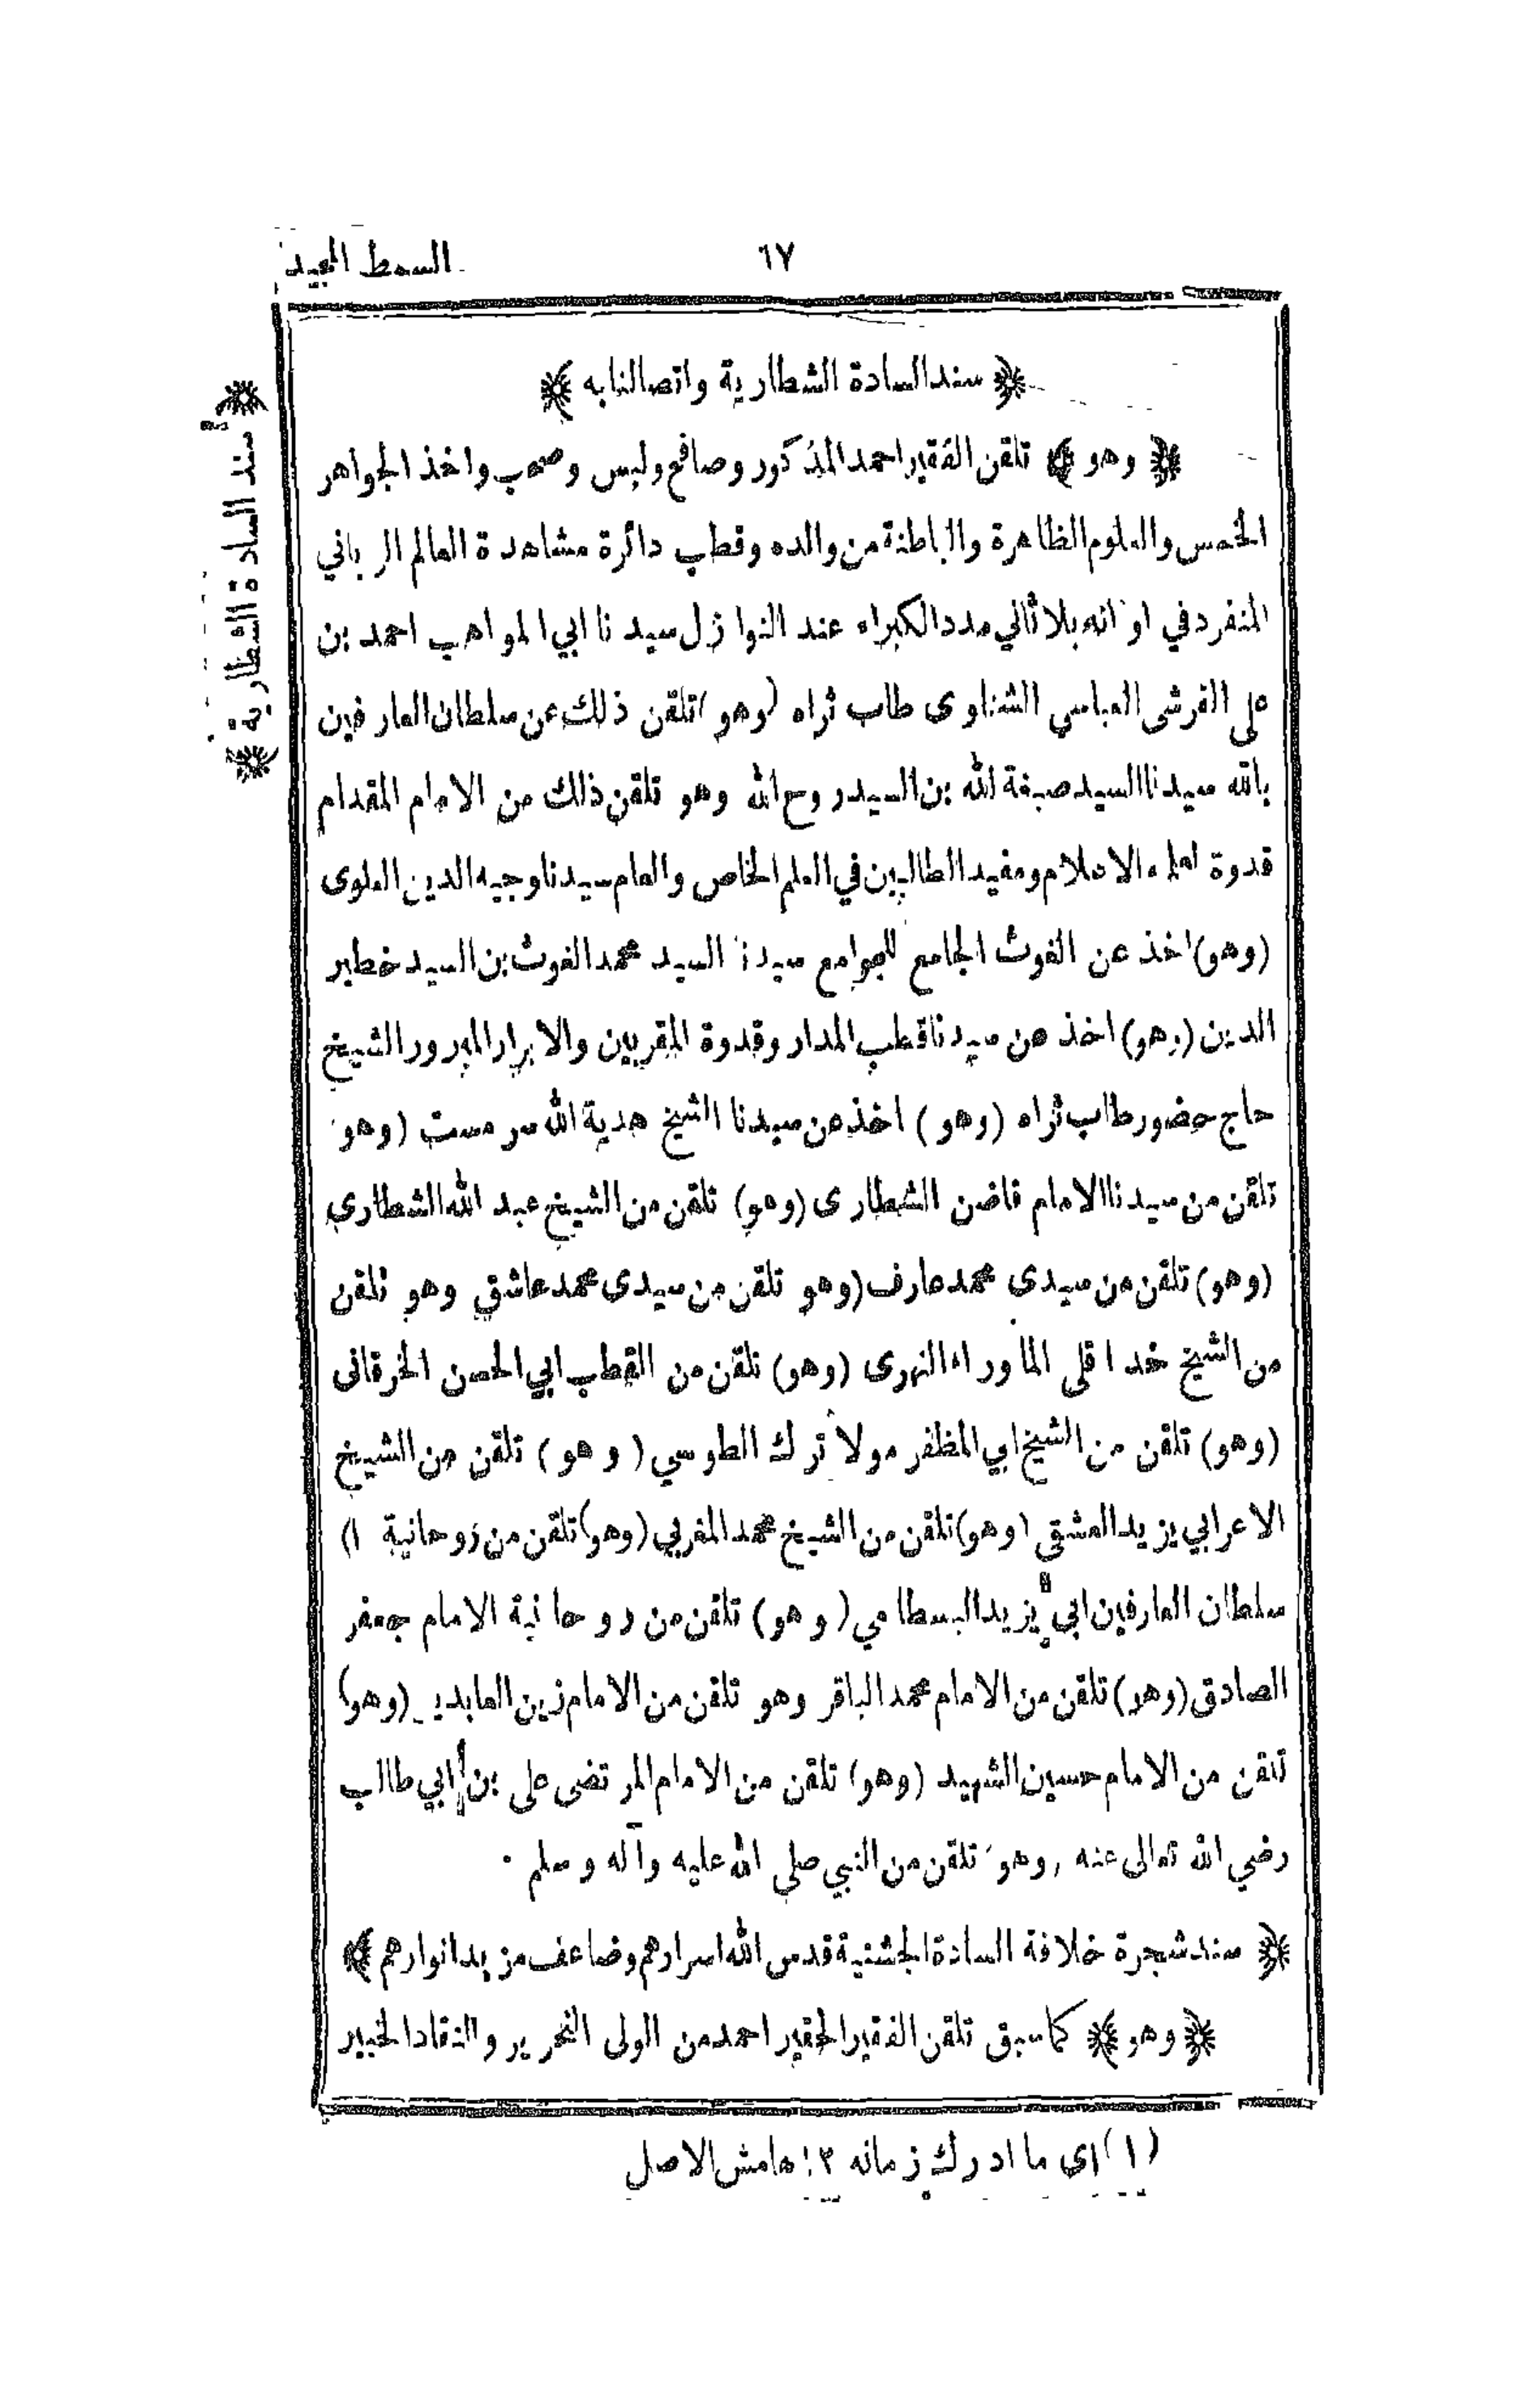 السمط المجيد
٦٧
﴿ سند السادة الشطارية واتصالنا به ﴾
﴿ وهو ﴾ تلقن الفقير احمد المذكور وصافح ولبس وصحب واخذ الجواهر
الخمس والعلوم الظاهرة والباطنة من والده وقطب دائرة مشاهدة العالم الرباني
المنفرد في اوانه بلا ثاني مدد الكبراء عند النوازل سيدنا ابي المواهب احمد بن
على القرشى العباسي الشناوى طاب ثراه (وهو) تلقن ذلك عن سلطان العارفين
بالله سيدنا السيد صبغة الله بن السيد روح الله وهو تلقن ذلك من الامام المقدام
قدوة العلماء الاعلام ومفيد الطالبين في العلم الخاص والعام سيدنا وجيه الدين العلوى
(وهو) اخذ عن الغوث الجامع للجوامع سيدنا السيد محمد الغوث بن السيد خطير
الدين (وهو) اخذ عن سيدنا قطب المدار وقدوة المقربين والابرار المبرور الشيخ
حاج حضور طاب ثراه (وهو) اخذ عن سيدنا الشيخ هدية الله سرمست (وهو
تلقن من سيدنا الامام قاضن الشطارى (وهو) تلقن من الشيخ عبد الله الشطارى
(وهو) تلقن من سيدى محمد عارف (وهو تلقن من سيدى محمد عاشق وهو تلقن
من الشيخ خدا قلى الماوراء النهرى (وهو) تلقن من القطب ابي الحسن الخرقانى
(وهو) تلقن من الشيخ ابي المظفر مولا ترك الطوسي (وهو) تلقن من الشيخ
الاعرابي يزيد العشقي (وهو) تلقن من الشيخ محمد المغربي (وهو) تلقن من روحانية ١)
سلطان العارفين ابي يزيد البسطامي (وهو) تلقن من روحانية الامام جعفر
الصادق (وهو) تلقن من الامام محمد الباقر وهو تلقن من الامام زين العابدين (وهو)
تلقن من الامام حسين الشهيد (وهو) تلقن من الامام المرتضى على بن ابي طالب
رضي الله تعالى عنه وهو تلقن من النبي صلى الله عليه وآله وسلم ٠
﴿ سند شجرة خلافة السادة الجشتية قدس الله اسرارهم وضاعف مزيد انوارهم ﴾
﴿ وهو ﴾ كما سبق تلقن الفقير الحقير احمد من الولى النحرير والنقاد الخبير
(١) اى ما ادرك زمانه ١٢ هامش الاصل
﴿ سند السادة الشطارية ﴾